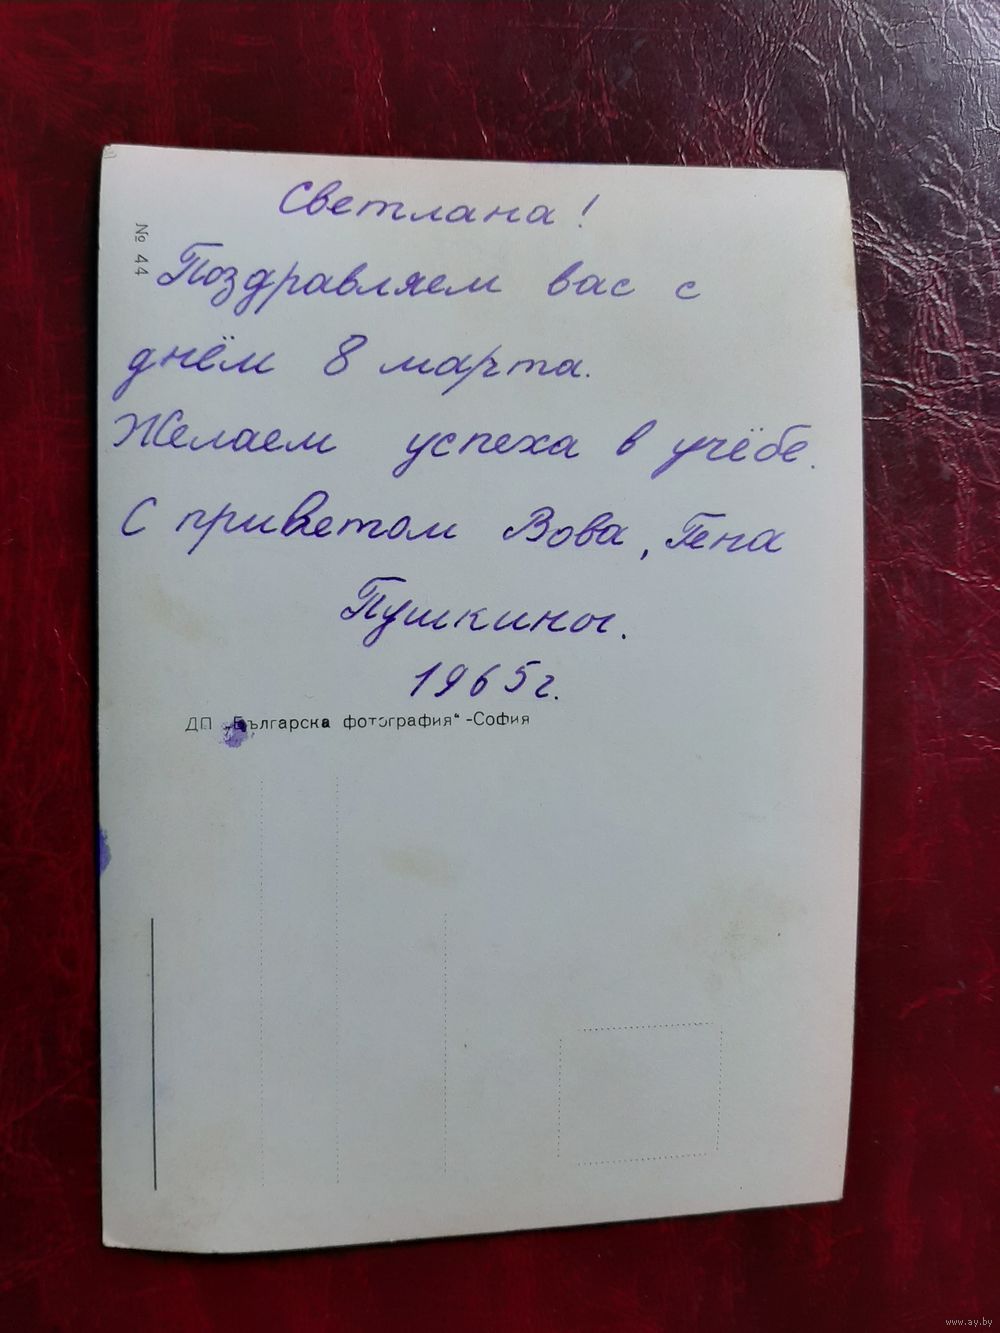 Светлана!
№ 44
Поздравляем вас с
днём 8 марта.
Желаем успеха в учёбе.
С приветом Вова, Гена
Пушкины.
1965 г.
ДП „Българска фотография“ -София
www.ay.by